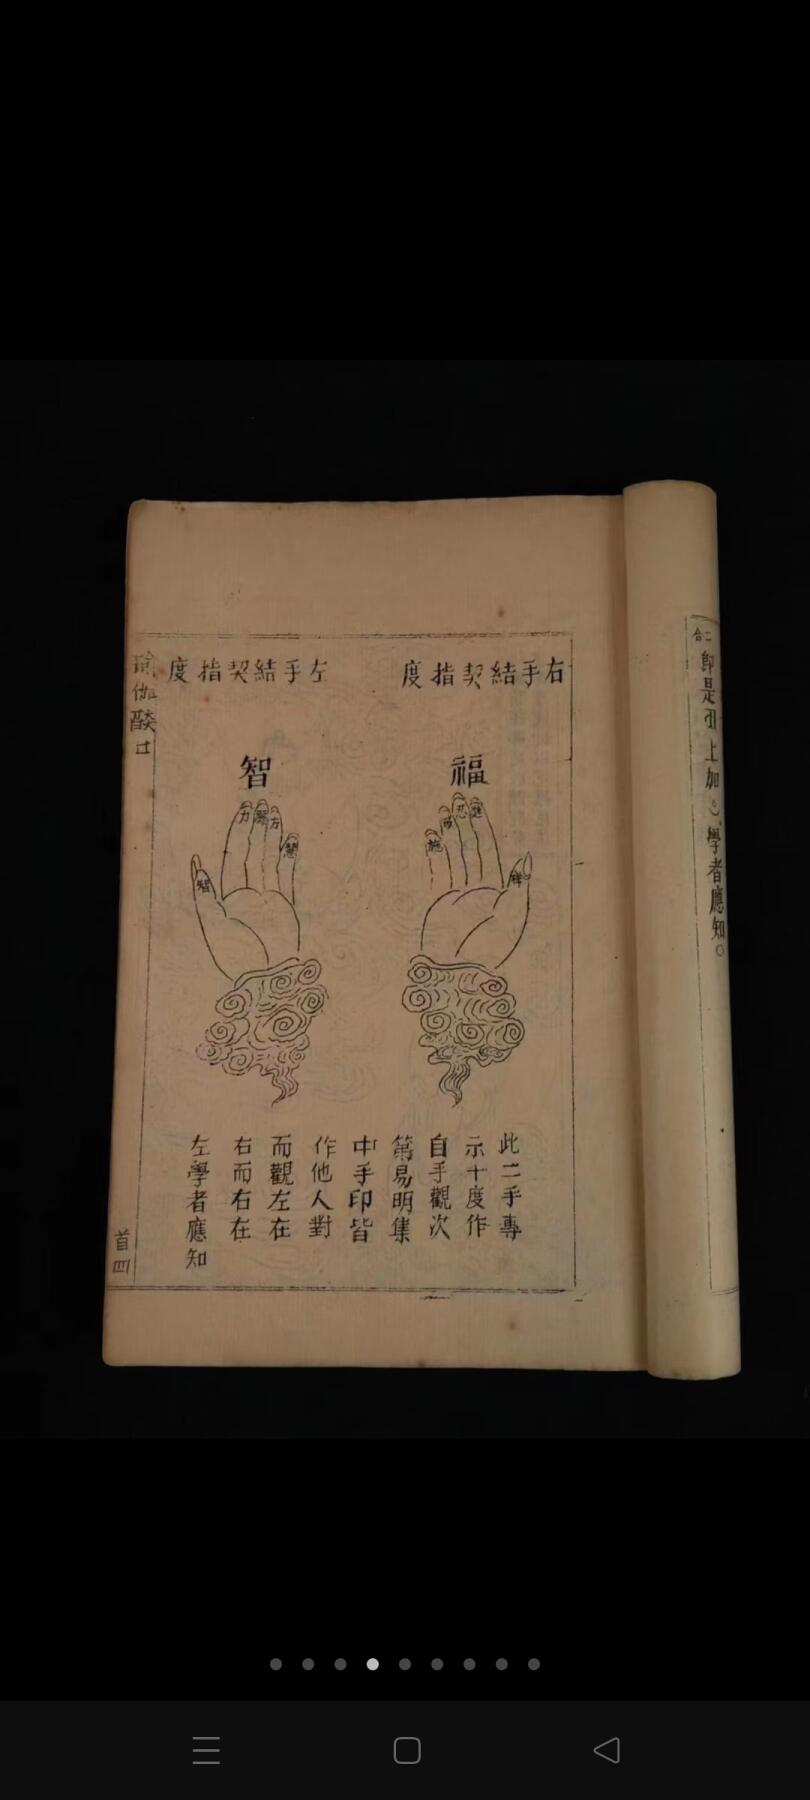 二合
即是 上加心學者應知○
右手結契指度
左手結契指度
福
進
忍
戒
施
禪
智
力
願
方
慧
智
此二手專
示十度作
自手觀次
第易明集
中手印皆
作他人對
而觀左在
右而右在
左學者應知
瑜伽燄口
首四